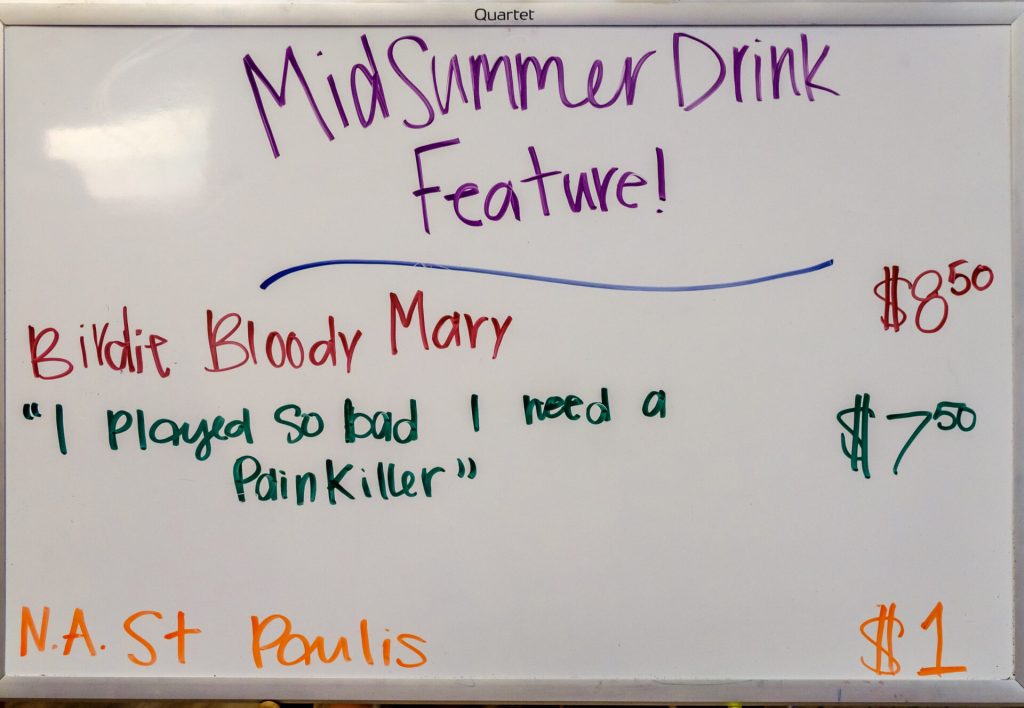 Quartet
MidSummer Drink
Feature!
Birdie Bloody Mary $850
"I Played So bad I need a $750
PainKiller"
N.A. St Paulis $1